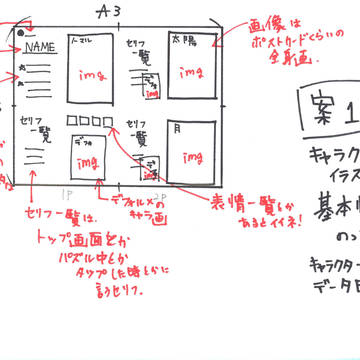 A3
画像は
ポストカードくらいの
全身画.
NAME
ノーマル
img
セリフ
一覧
デフォ
img
太陽
img
セリフ
一覧
デフォ
img
セリフ
一覧
デフォ
img
月
img
1P
2P
セリフ一覧は、
トップ画面とか
パズル中とか
タップした時とかに
言うセリフ.
デフォルメの
キャラ画
表情一覧とか
あるとイイネ!
案1
キャラク
イラス
基本情
のっ
キャラクター
データ